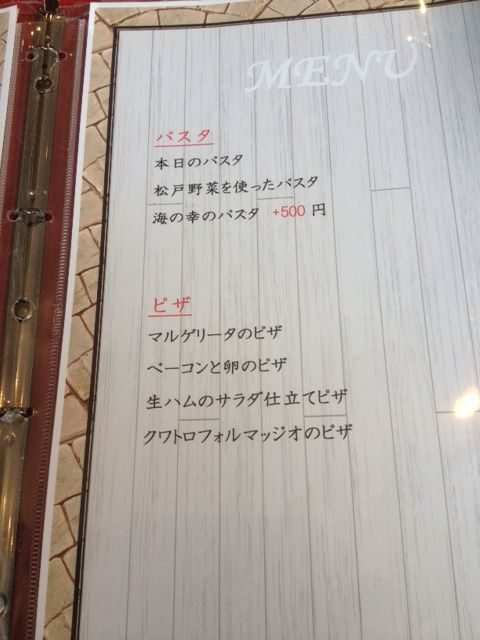 MENU
パスタ
本日のパスタ
松戸野菜を使ったパスタ
海の幸のパスタ +500 円
ピザ
マルゲリータのピザ
ベーコンと卵のピザ
生ハムのサラダ仕立てピザ
クワトロフォルマッジオのピザ